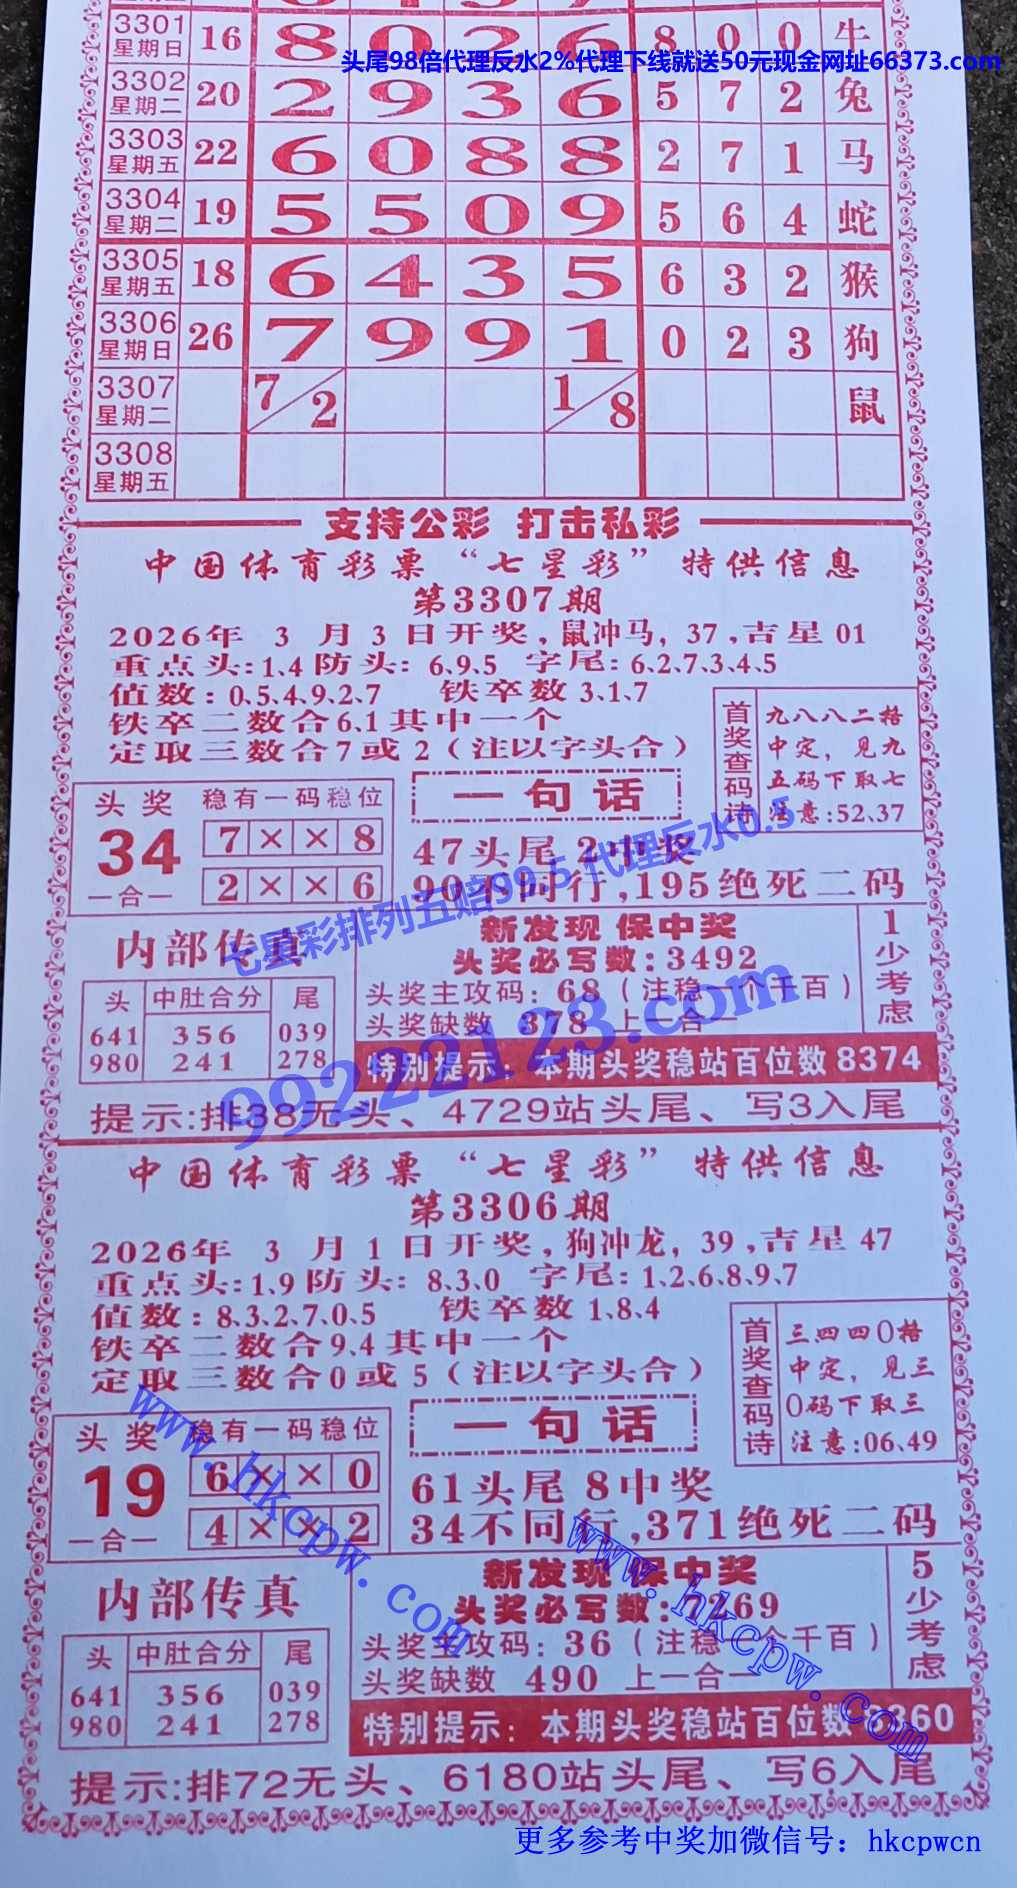 3301 星期日 16 8 0 2 6 8 0 0 牛
头尾98倍代理反水2%代理下线就送50元现金网址66373.com
3302 星期二 20 2 9 3 6 5 7 2 兔
3303 星期五 22 6 0 8 8 2 7 1 马
3304 星期二 19 5 5 0 9 5 6 4 蛇
3305 星期五 18 6 4 3 5 6 3 2 猴
3306 星期日 26 7 9 9 1 0 2 3 狗
3307 星期二 7/2 1/8 鼠
3308 星期五
支持公彩 打击私彩
中国体育彩票“七星彩”特供信息
第3307期
2026年 3 月 3 日开奖,鼠冲马, 37,吉星 01
重点头:1、4 防头: 6、9、5 字尾: 6、2、7、3、4、5
值数: 0、5、4、9、2、7 铁卒数 3、1、7
铁卒二数合6、1其中一个
定取三数合7或2(注以字头合)
首奖查码诗
九八八二格
中定, 见九
五码下取七
注意:52、37
头奖
34
一合一
稳有一码稳位
7 × × 8
2 × × 6
一句话
47头尾 2中奖
90不同行,195绝死二码
七星彩排列五赔99.5 代理反水0.5
内部传真
头 中肚合分 尾
641 356 039
980 241 278
新发现 保中奖
头奖必写数:3492
头奖主攻码: 68(注稳一个千百)
头奖缺数 378 上一合一
1少考虑
特别提示: 本期头奖稳站百位数 8374
99222123.com
提示:排38无头、4729站头尾、写3入尾
中国体育彩票“七星彩”特供信息
第3306期
2026年 3 月 1 日开奖,狗冲龙, 39,吉星 47
重点头:1、9 防头: 8、3、0 字尾: 1、2、6、8、9、7
值数: 8、3、2、7、0、5 铁卒数 1、8、4
铁卒二数合9、4其中一个
定取三数合0或5(注以字头合)
首奖查码诗
三四四0格
中定, 见三
0码下取三
注意:06、49
头奖
19
一合一
稳有一码稳位
6 × × 0
4 × × 2
一句话
61头尾 8中奖
34不同行,371绝死二码
www.hkcpw.com
内部传真
头 中肚合分 尾
641 356 039
980 241 278
新发现 保中奖
头奖必写数:7269
头奖主攻码: 36(注稳一个千百)
头奖缺数 490 上一合一
5少考虑
www.hkcpw.com
特别提示: 本期头奖稳站百位数 360
提示:排72无头、6180站头尾、写6入尾
更多参考中奖加微信号：hkcpwcn